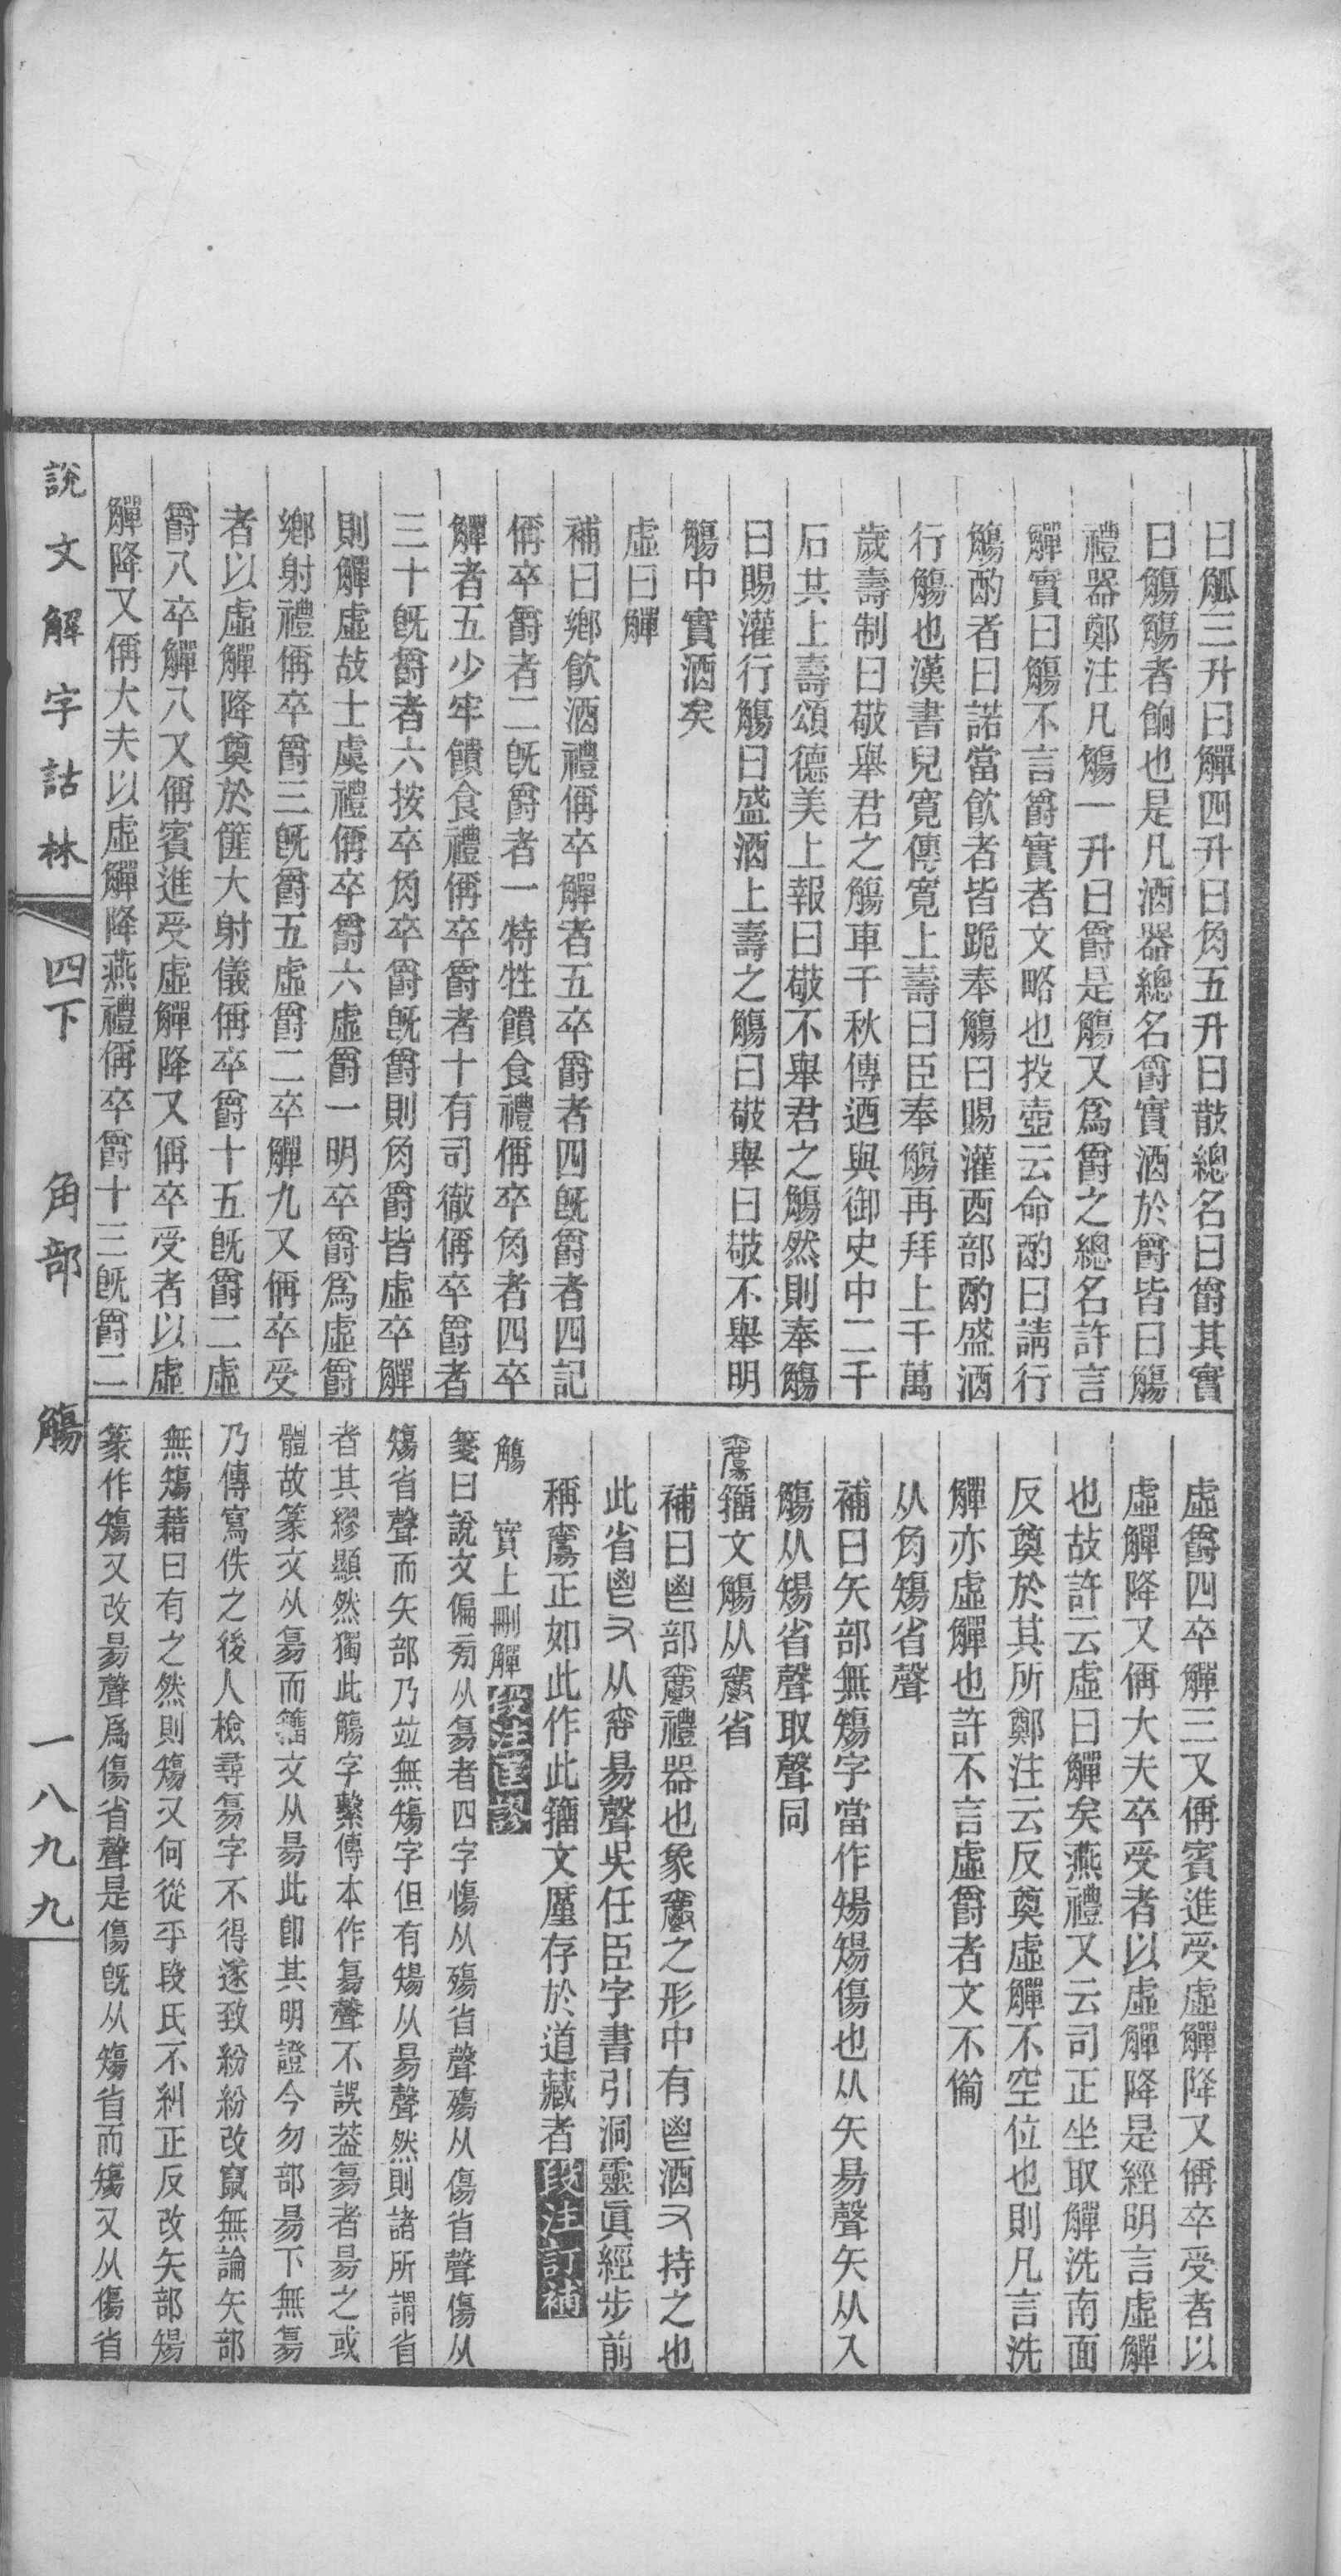 曰觚三升曰觶四升曰角五升曰散總名曰爵其實
曰觴觴者餉也是凡酒器總名爵實酒於爵皆曰觴
禮器鄭注凡觴一升曰爵是觴又爲爵之總名許言
觶實曰觴不言爵實者文略也投壺云命酌曰請行
觴酌者曰諾當飮者皆跪奉觴曰賜灌酉部酌盛酒
行觴也漢書兒寬傳寬上壽曰臣奉觴再拜上千萬
歲壽制曰敬舉君之觴車千秋傳迺與御史中二千
石共上壽頌德美上報曰敬不舉君之觴然則奉觴
曰賜灌行觴曰盛酒上壽之觴曰敬舉曰敬不舉明
觴中實酒矣
虛曰觶
補曰鄉飮酒禮偁卒觶者五卒爵者四旣爵者四記
偁卒爵者二旣爵者一特牲饋食禮偁卒角者四卒
觶者五少牢饋食禮偁卒爵者十有司徹偁卒爵者
三十旣爵者六按卒角卒爵旣爵則角爵皆虛卒觶
則觶虛故士虞禮偁卒爵六虛爵一明卒爵爲虛爵
鄉射禮偁卒爵三旣爵五虛爵二卒觶九又偁卒受
者以虛觶降奠於篚大射儀偁卒爵十五旣爵二虛
爵八卒觶八又偁賓進受虛觶降又偁卒受者以虛
觶降又偁大夫以虛觶降燕禮偁卒爵十三旣爵二
虛爵四卒觶三又偁賓進受虛觶降又偁卒受者以
虛觶降又偁大夫卒受者以虛觶降是經明言虛觶
也故許云虛曰觶矣燕禮又云司正坐取觶洗南面
反奠於其所鄭注云反奠虛觶不空位也則凡言洗
觶亦虛觶也許不言虛爵者文不僃
从角𥏻省聲
補曰矢部無𥏻字當作𥏫𥏫傷也从矢昜聲矢从入
觴从𥏫省聲取聲同
籒文觴从爵省
補曰鬯部爵禮器也象爵之形中有鬯酒又持之也
此省鬯又从昜聲吳任臣字書引洞靈眞經步前
稱正如此作此籒文厪存於道藏者 段注訂補
觴 實上刪觶 段注匡謬
箋曰說文偏㫄从𥏻者四字慯从殤省聲殤从傷省聲傷从
𥏻省聲而矢部乃竝無𥏻字但有𥏫从昜聲然則諸所謂省
者其繆顯然獨此觴字繫傳本作𠃵聲不誤葢𠃵者昜之或
體故篆文从𠃵而籒文从昜此卽其明證今勿部昜下無𠃵
乃傳寫佚之後人檢尋𠃵字不得遂致紛紛改竄無論矢部
無𥏻藉曰有之然則𥏻又何從乎段氏不糾正反改矢部𥏫
篆作𥏻又改昜聲爲傷省聲是傷旣从𥏻省而𥏻又从傷省
說文解字詁林 四下 角部 觴 一八九九